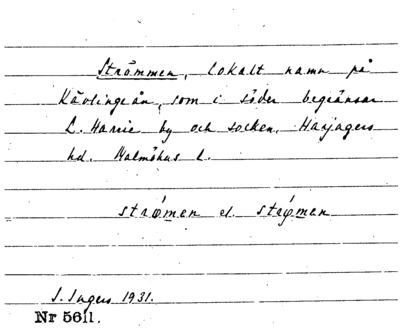 Strömmen, lokalt namn på
Kävlingeån, som i söder begränsar
L. Harrie by och socken, Harjagers
hd. Malmöhus l.
strǿmen el. strǿmen
I. Ingers 1931.
Nr 5611.